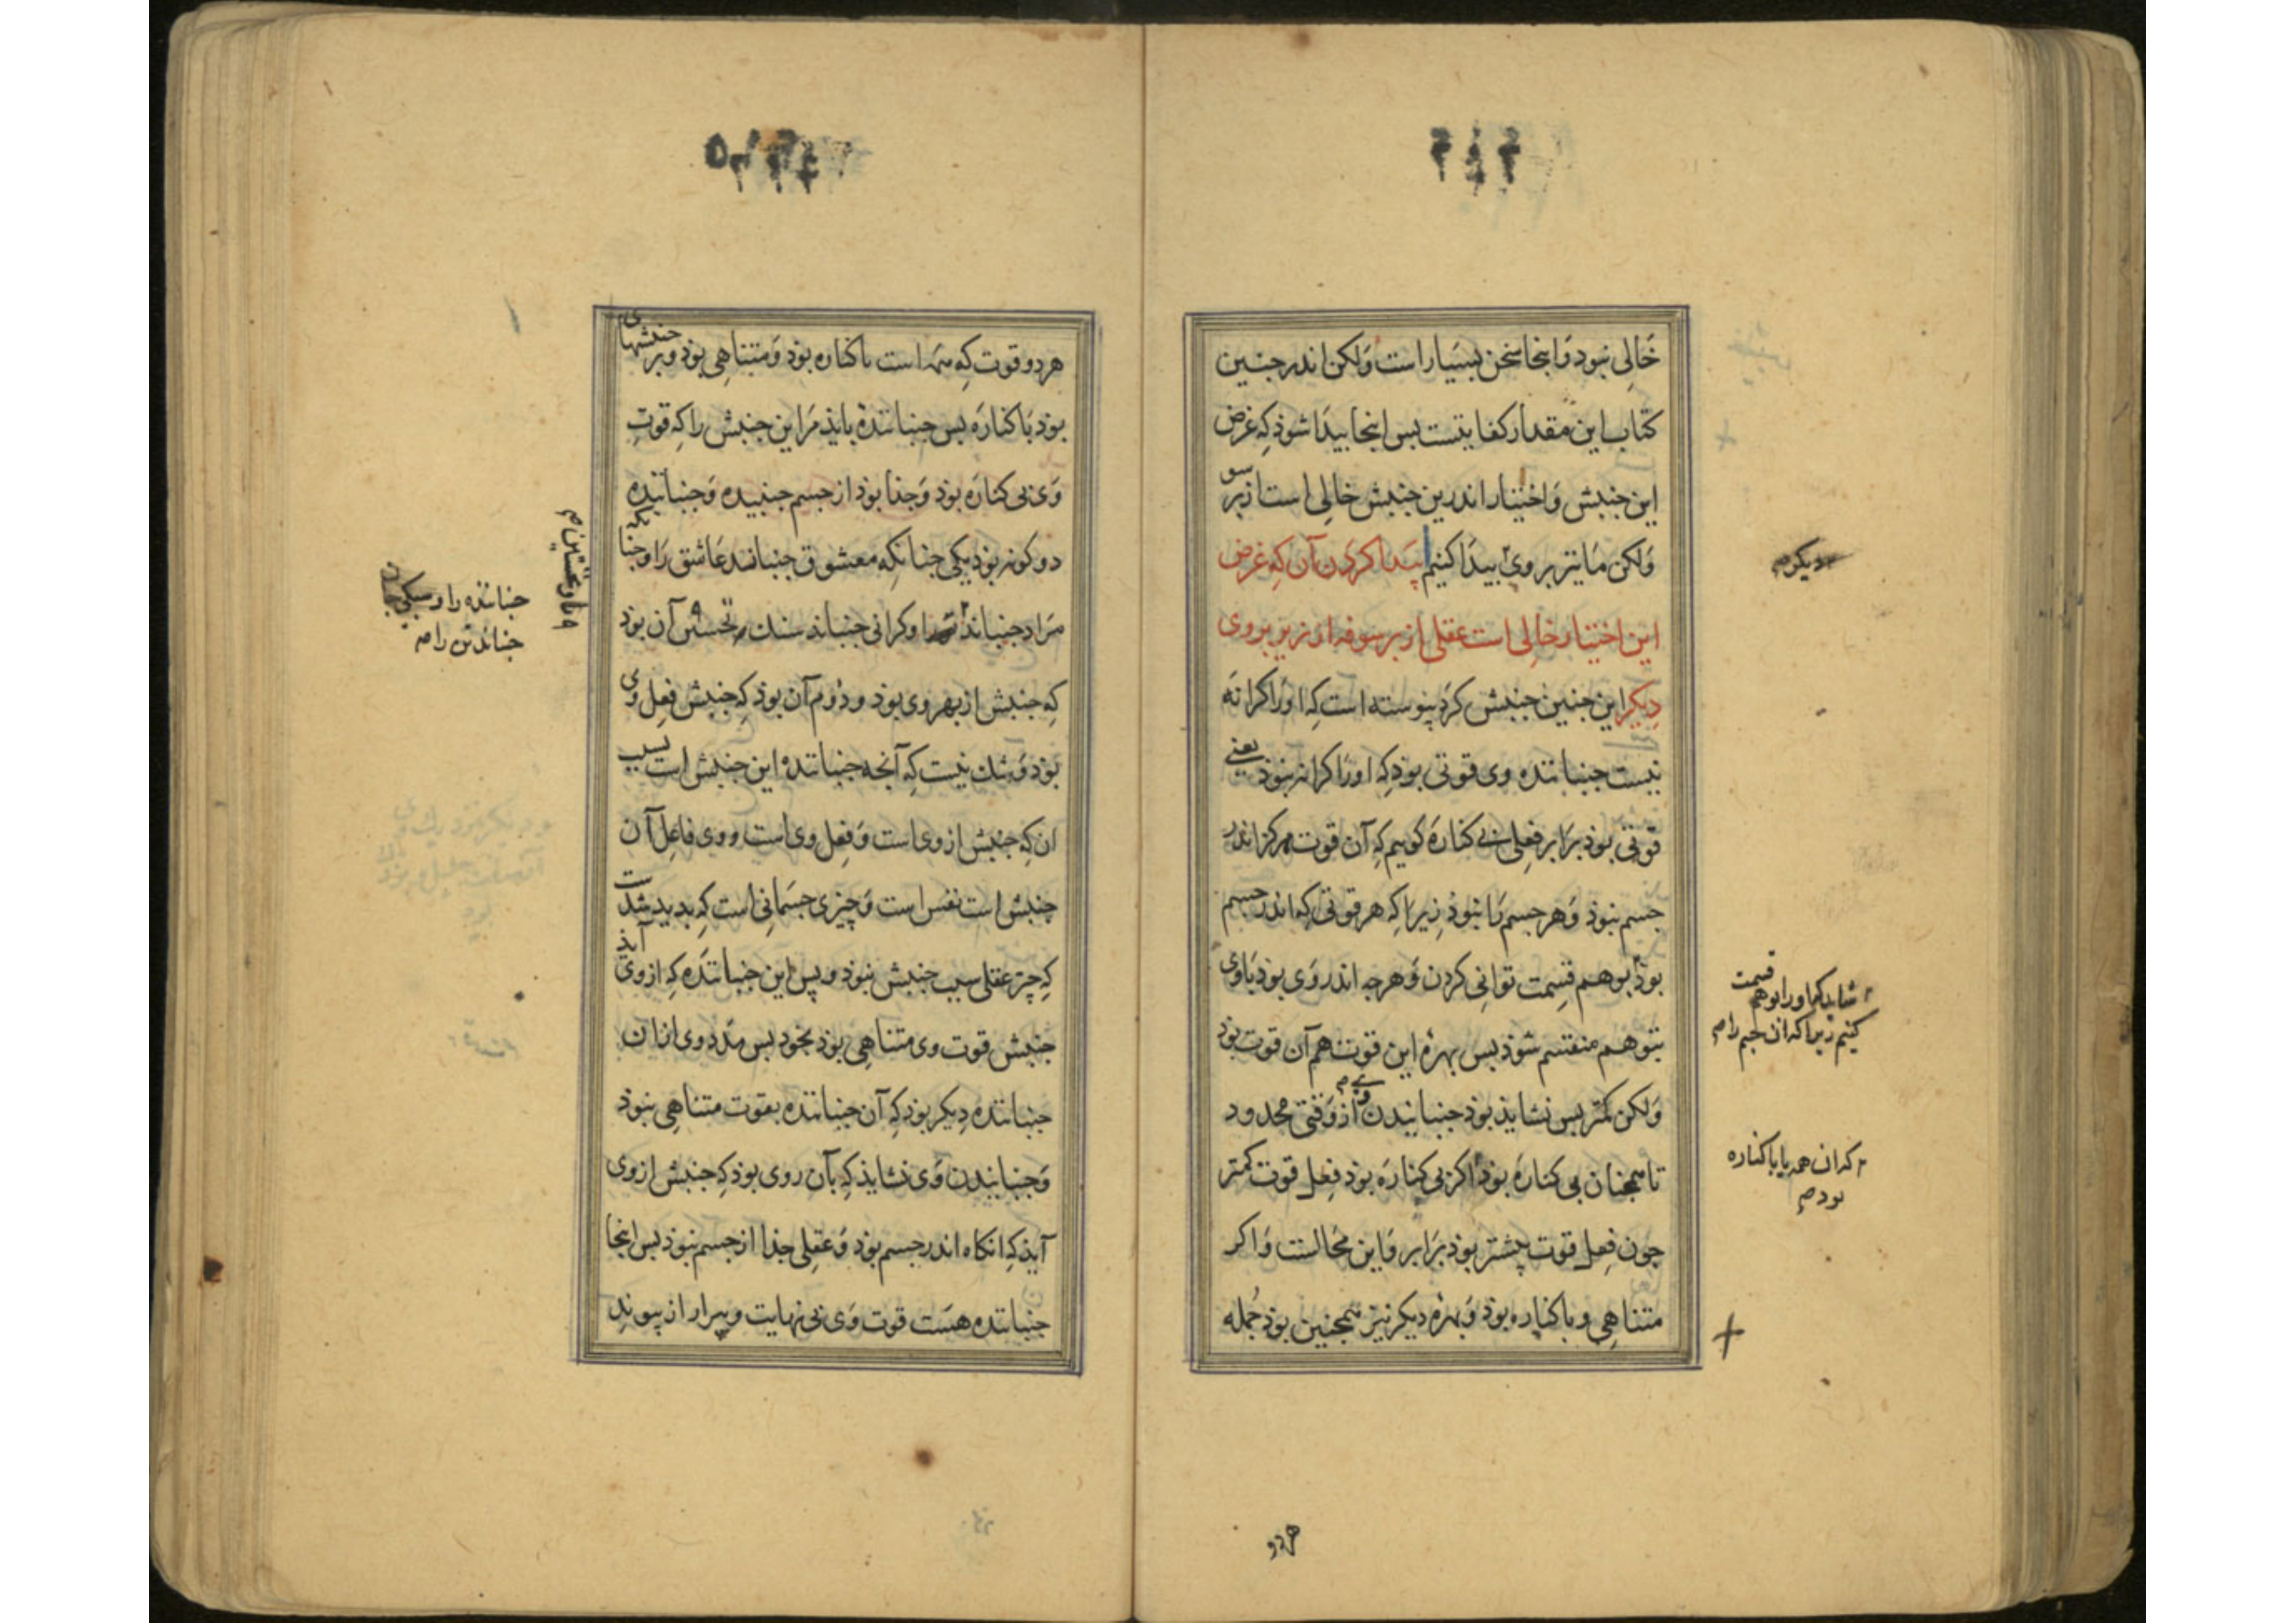 خالی نبوذ و اینجا سخن بسیار است ولکن اندر جنین
کتاب این مقدار کفایتست بس اینجا بیدا شوذ که غرض
این جنبش و اختیار اندرین جنبش خالی است از بر سو
ولکن ما نیز بر وی بیدا کنیم پیدا کردن آن که غرض
این اختیار خالی است عقلی از بر سو نه از زیر بروی
دیکر این جنین جنبش کرد پیوسته است که او را کرانه
نیست جنباننده وی قوتی بوذ که او را کرانه نبوذ یعنی
قوتی بوذ برابر فعلی بی کناره کوییم که آن قوت هرکز اندر
جسم نبوذ و هر جسم را نبوذ زیرا که هر قوتی که اندر جسم
بوذ بوهم قسمت توانی کردن و هرجه اندر وی بوذ با وی
بتوهم منقسم شوذ بس بهره این قوت هم آن قوت بوذ
ولکن کمتر بس نشایذ بوذ جنبانیدن وی از وقتی محدود
تا همجنان بی کناره بوذ اکر بی کناره بوذ فعل قوت کمتر
جون فعل قوت بیشتر بوذ برابر و این محالست و اکر
متناهی و با کناره بوذ و بهره دیکر نیز همجنین بوذ جمله
دیکر
شاید که او را بوهم قسمت
کنیم زیرا که ان جسم را
که ان همه با کناره
بود
هر دو
هر دو قوت که بهم است با کناره بوذ و متناهی بوذ و بر جنبشهای
بوذ با کناره بس جنباننده بایذ مر این جنبش را که قوت
وی بی کناره بوذ و جذا بوذ از جسم جنبیده و جنباننده
دو کونه بوذ یکی جنانکه معشوق جنباند عاشق را و جنانکه
مراد جنباند و کرانی جنباند سنک نخستین آن بوذ
که جنبش از بهر وی بوذ و دوم آن بوذ که جنبش فعل وی
بوذ و شک نیست که آنجه جنباننده این جنبش است بسبب
ان که جنبش از وی است و فعل وی است و وی فاعل آن
جنبش است نفس است و چیزی جسمانی است که بدید شذست
که چیز عقلی سبب جنبش نبوذ و پس این جنباننده که از وی آیذ
جنبش قوت وی متناهی بوذ بخود بس مدد وی از ان
جنباننده دیکر بوذ که آن جنباننده بقوت متناهی نبوذ
و جنبانیدن وی نشایذ که بآن روی بوذ که جنبش از وی
آیذ که انکاه اندر جسم بوذ و عقلی جذا از جسم نبوذ بس اینجا
جنباننده هست قوت وی بی نهایت و بیزار از پیوند
جنباننده را و
جنباند تن را